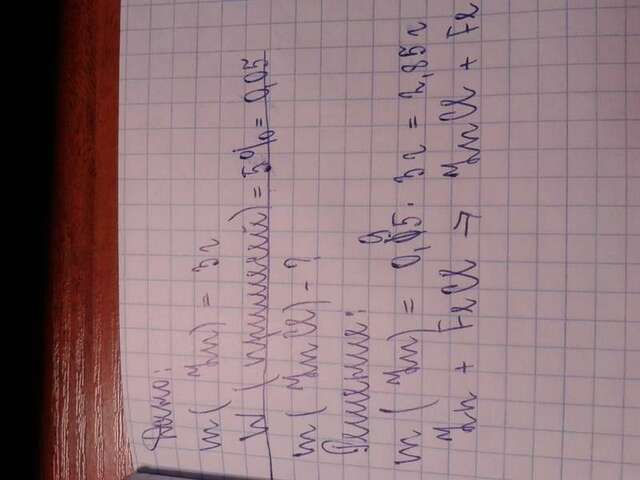 Дано:
m(Zn) = 3г
W(примесей) = 5% = 0,05
m(ZnCl) - ?
Решение:
m(Zn) = 0,95 · 3г = 2,85г
Zn + FeCl → ZnCl + Fe